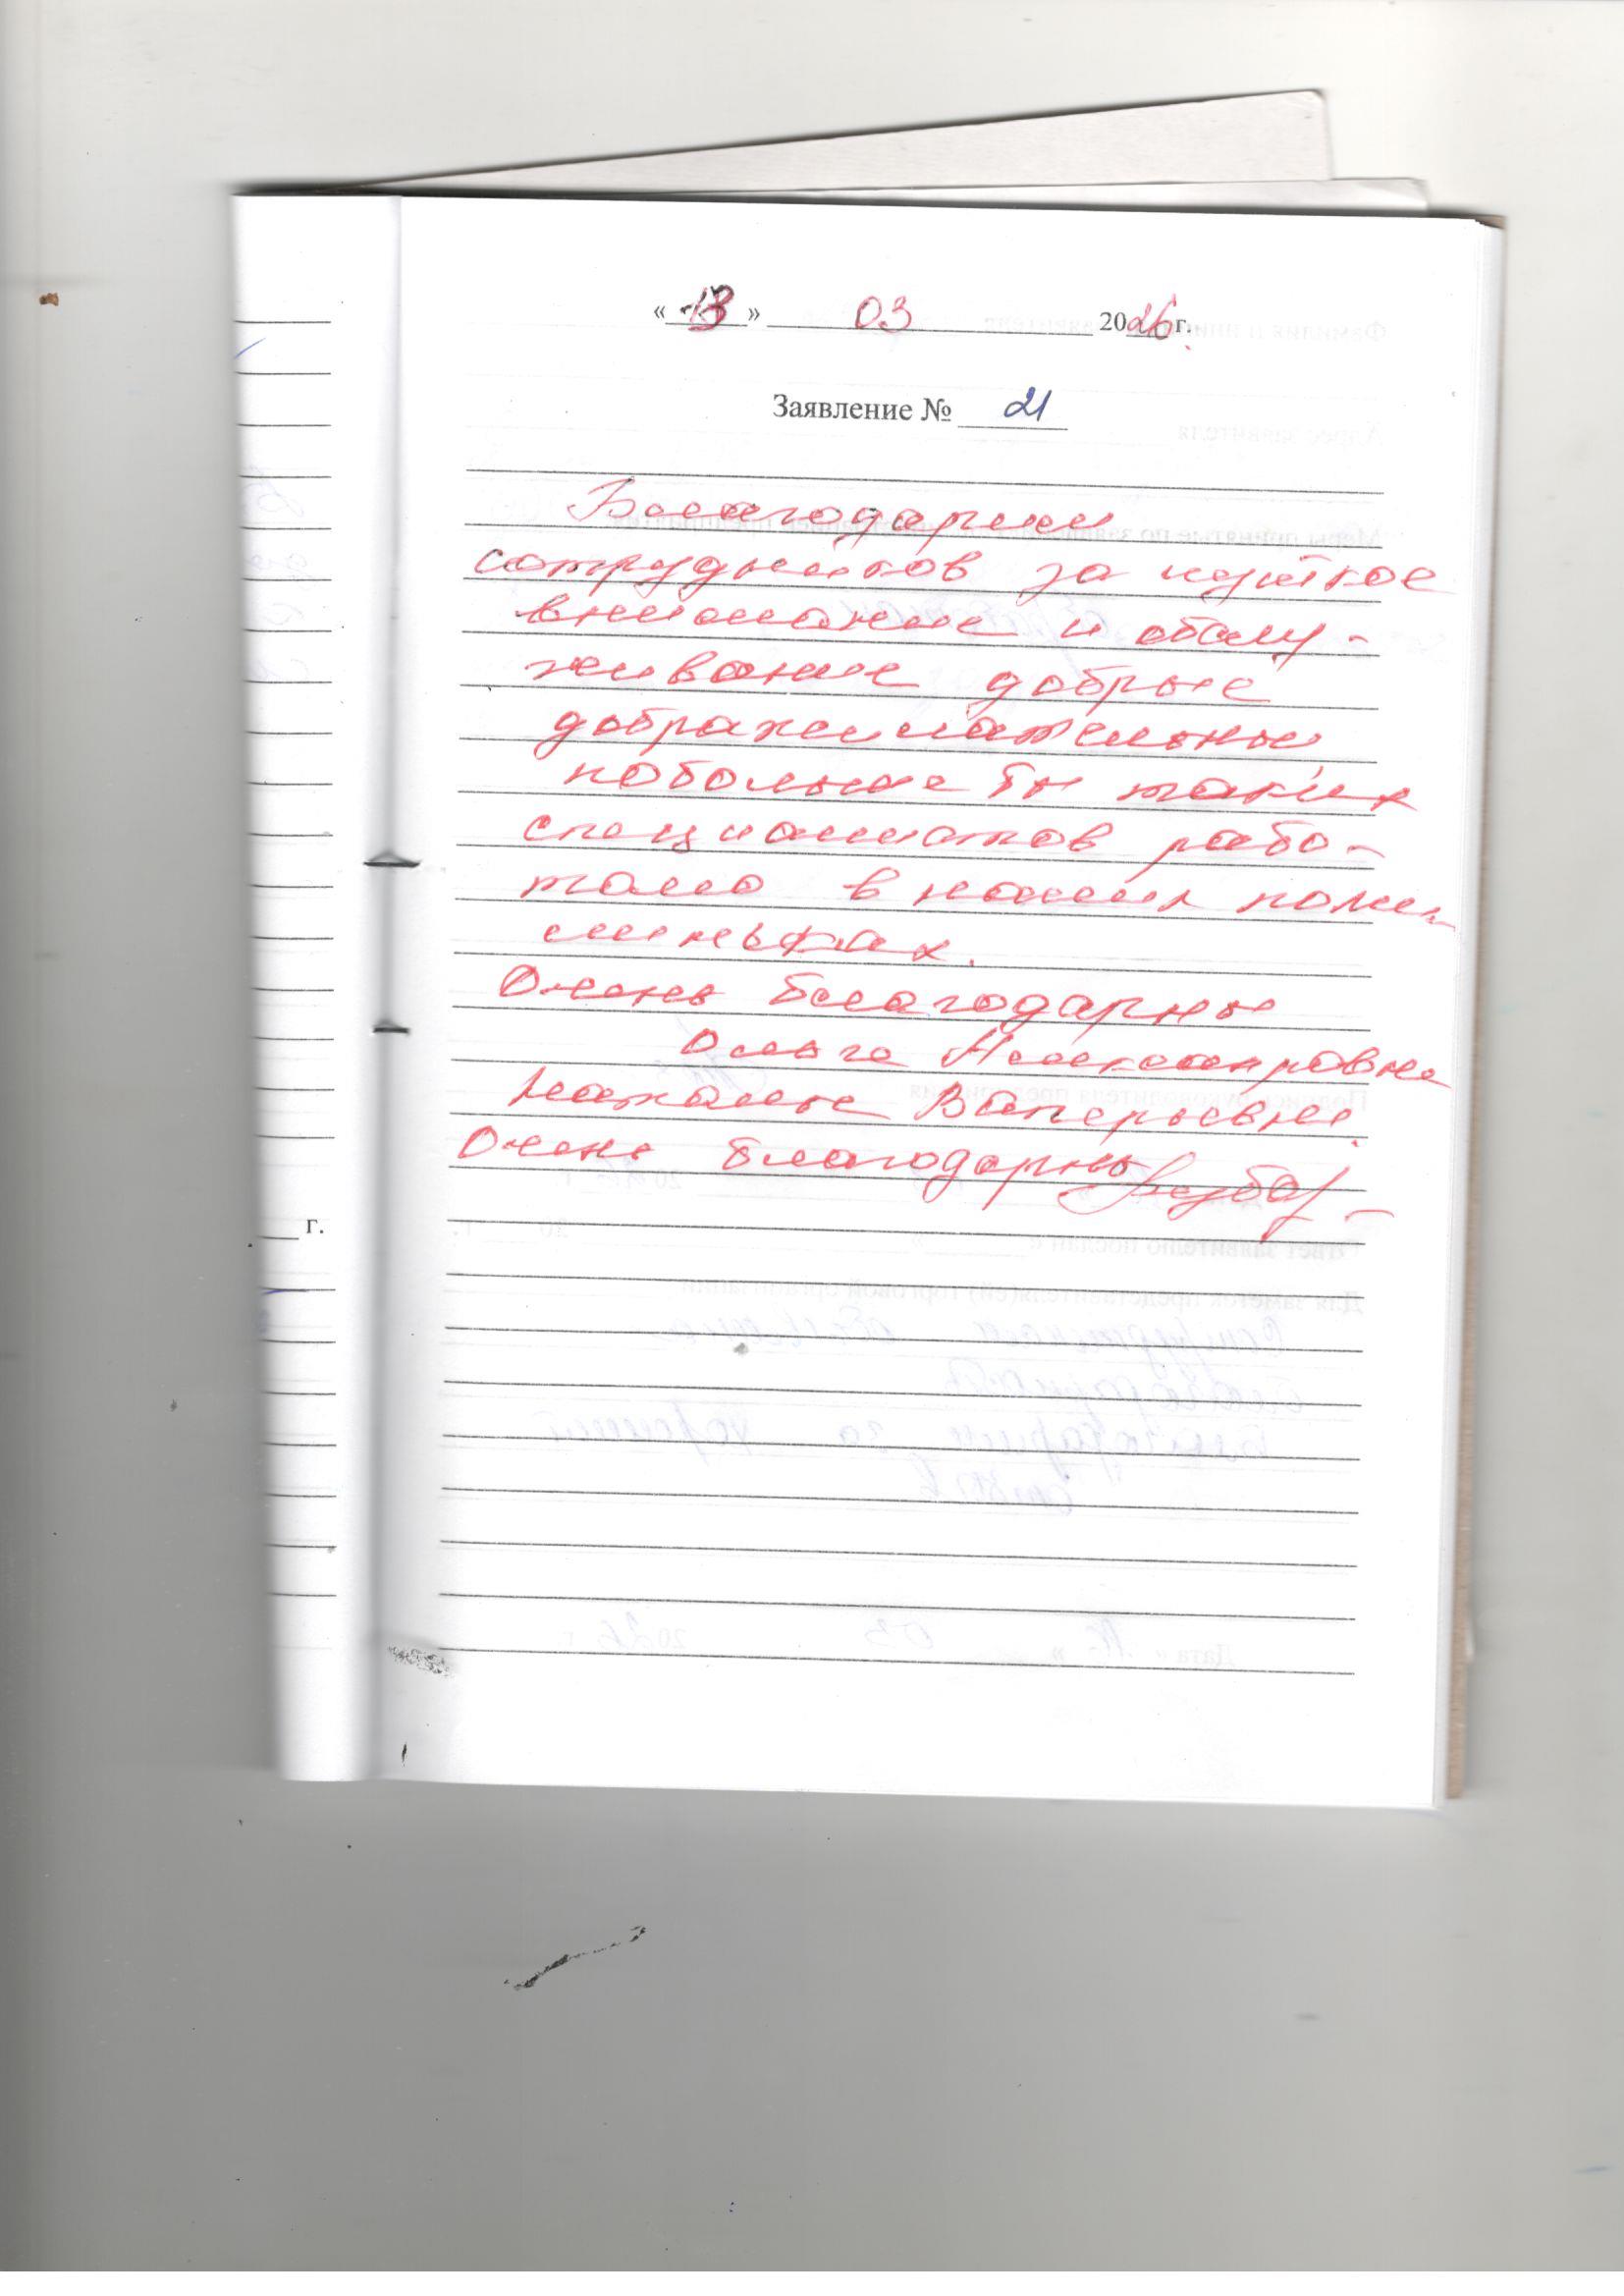 «13» 03 2026 г.
Заявление № 21
Благодарим
сотрудников за чуткое
внимание и обслу-
живание добрые
доброжелательные
побольше бы таких
специалистов рабо-
тало в наших поли
клиниках.
Очень благодарны
Ольге Александровне
Наталье Валерьевне.
Очень благодарны
г.